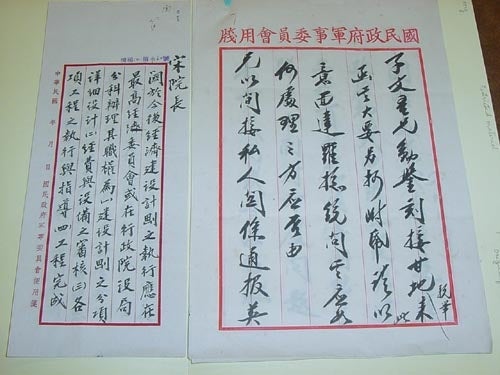 國民政府軍事委員會用牋
子文吾兄勛鑒刻接甘地來
大要另抄附
意面達羅總統
何處理之方應須由
兄以間接私人關係通報英
宋院長
關於今後經濟建設計劃之執行應在
最高經濟委員會或在行政院設局
分科辦理其職權為㈠建設計劃之分項
詳細設計㈡經費與設備之審核㈢各
項工程之執行與指導㈣工程完成
中華民國 年 月 日 國民政府軍事委員會便用箋